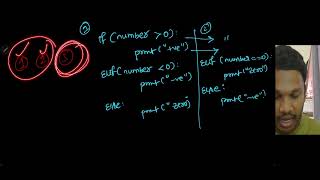 ① ② ③
②
if (number > 0):
print("+ve")
Elif (number < 0):
print("-ve")
Else:
print("zero")
②
"
Elif (number == 0):
print("zero")
Else:
print("-ve")